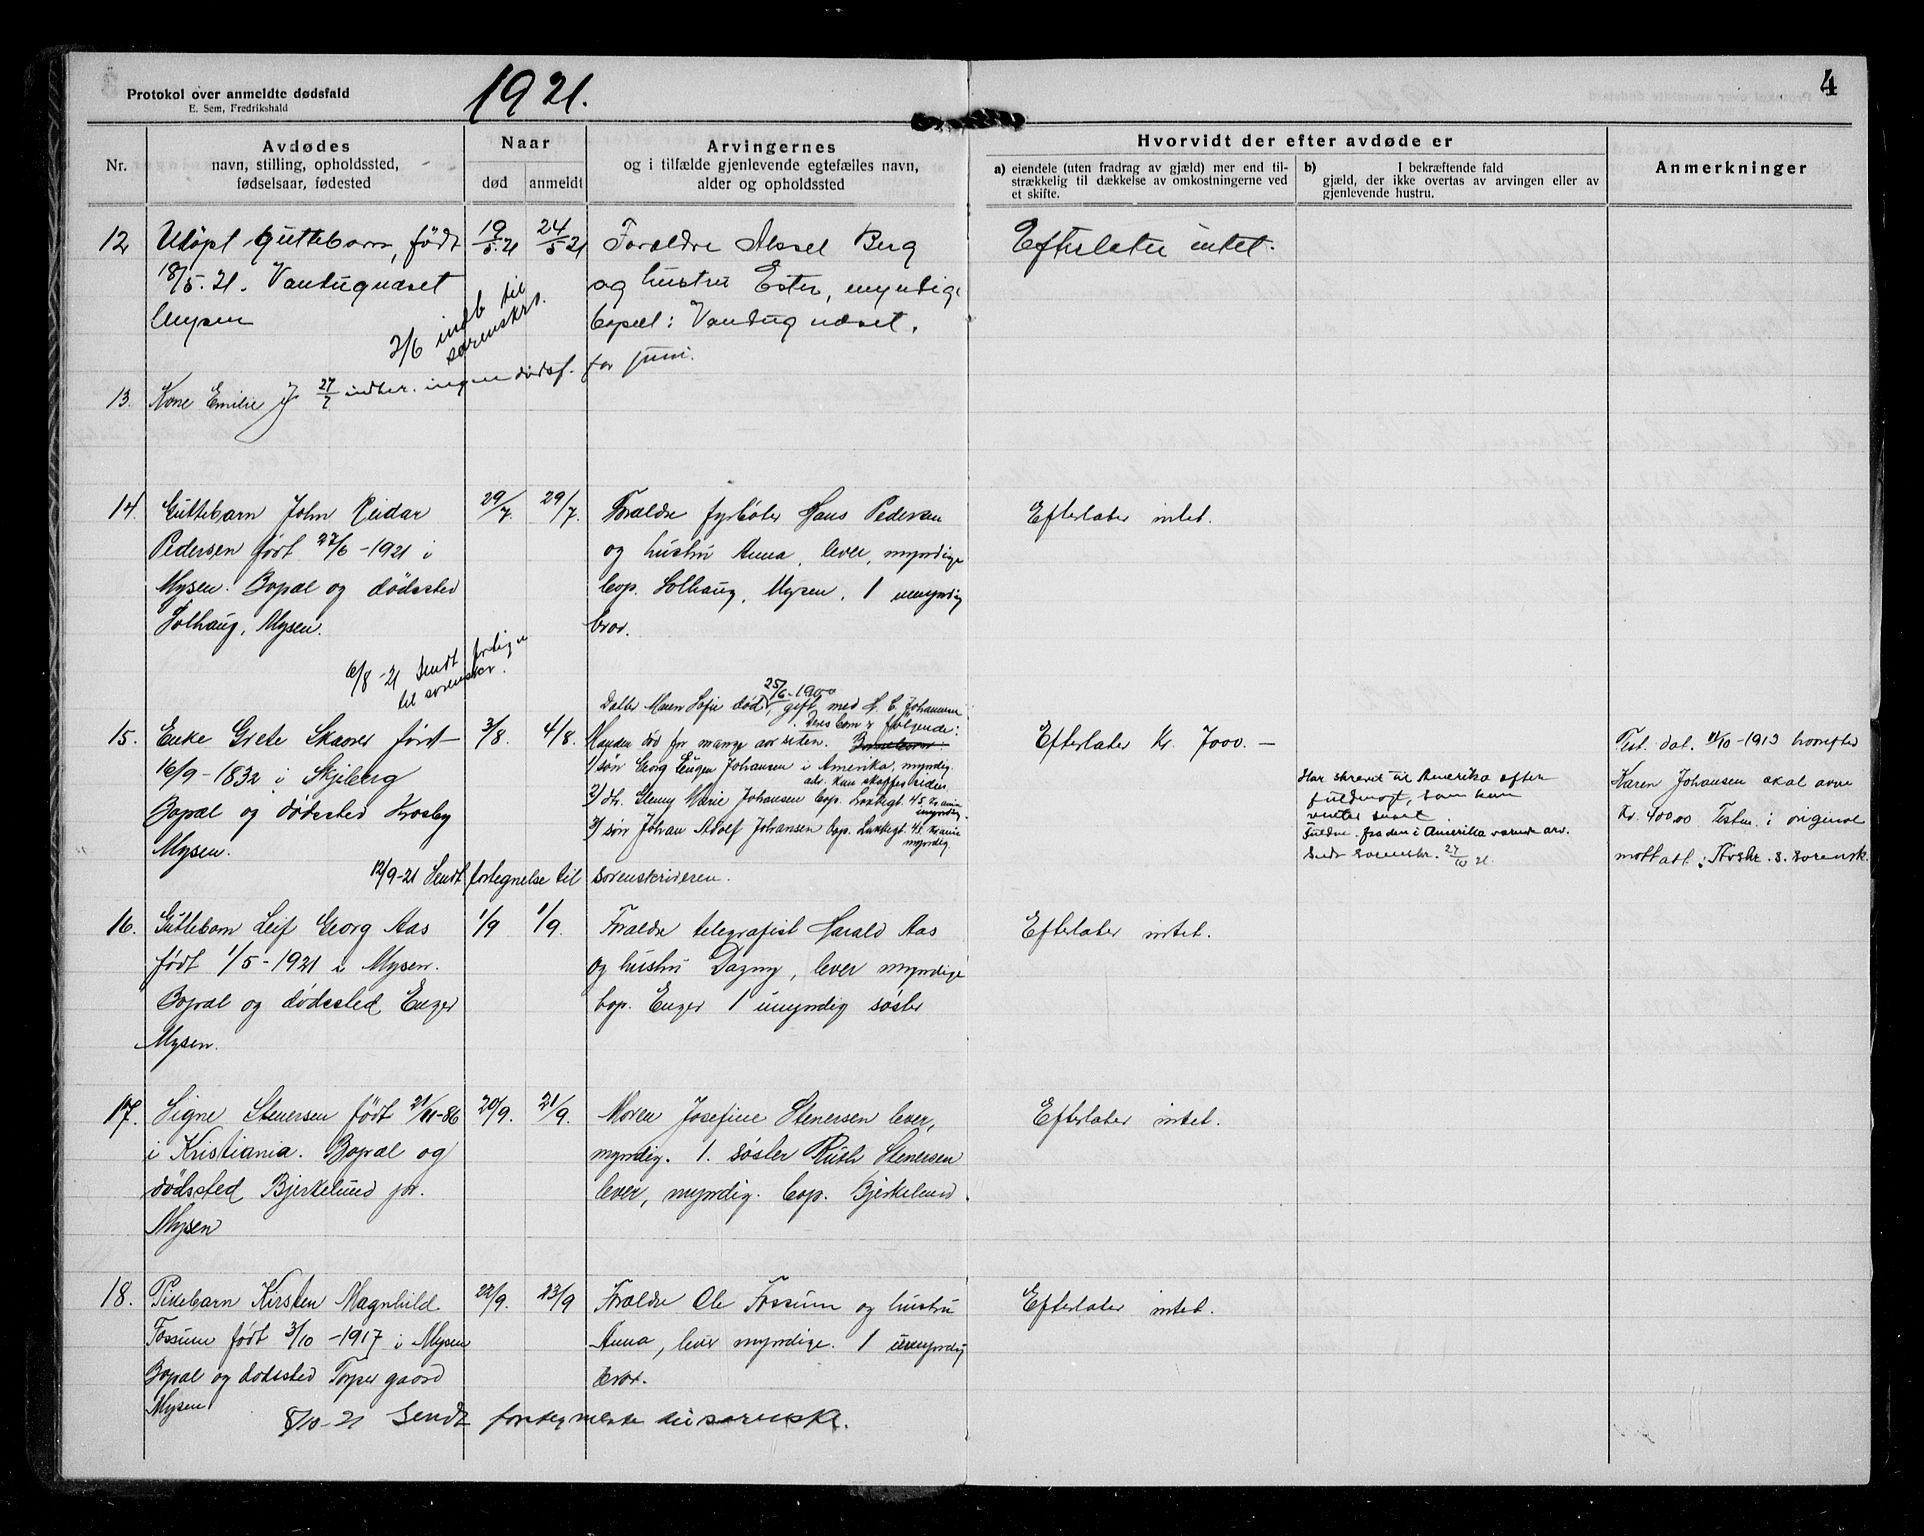 Protokol over anmeldte dødsfald
E. Sem, Fredrikshald
1921.
4
Nr.
Avdødes
navn, stilling, opholdssted,
fødselsaar, fødested
Naar
død
anmeldt
Arvingernes
og i tilfælde gjenlevende egtefælles navn,
alder og opholdssted
Hvorvidt der efter avdøde er
a) eiendele (uten fradrag av gjæld) mer end til-
strækkelig til dækkelse av omkostningerne ved
et skifte.
b) I bekræftende fald
gjæld, der ikke overtas av arvingen eller av
gjenlevende hustru.
Anmerkninger
12
Udøpt guttebarn, født
18/5.21.
Mysen
19/5.21
24/5 21
Forældre Aksel Berg
og hustru Ester, myndige
bopæl:
Efterlater intet.
2/6 indb til
sorenskr.
13.
Kone Emilie J
27/7 indber. ingen dødsf. for juni.
14.
Guttebarn John Reidar
Pedersen født 27/6-1921 i
Mysen. Bopæl og dødssted
Solhaug, Mysen.
29/7.
29/7.
Forældre fyrbøter Hans Pedersen
og hustru Anna, lever, myndige
bop. Solhaug, Mysen. 1 umyndig
bror.
Efterlater intet.
6/8-21 Sendt fortegn
til sorenskr.
15.
Enke Grete Skaarer født
16/9-1832 i Skjeberg
Bopæl og dødssted Krosby
Mysen.
3/8.
4/8.
Datter Maren Sofie død 25/6-1900, gift med H. E. Johansen
Deres barn er følgende:
Manden død for mange aar siden.
1/ søn Georg Eugen Johansen i Amerika, myndig.
adr. kan skaffes siden
2/ dtr. Jenny Marie Johansen bop. 45 Kr.ania
myndig.
3/ søn Johan Adolf Johansen bop. 45 Kr.ania
myndig.
Efterlater Kr. 7000.-
Har skrevet til Amerika efter
fuldmagt, som kan
venter snart.
Fuldm. fra den i Amerika værende arv.
Sendt sorenskr. 27/10 21.
Test. dat. 11/10-1913 hvorefter
Karen Johansen skal arve
Kr. 400.00 Testm. i original
mottatt:
12/9-21 Sendt fortegnelse til sorenskriveren.
16.
Guttebarn Leif Georg Aas
født 1/5-1921 i Mysen.
Bopæl og dødssted Enger
Mysen.
1/9
1/9.
Forældre telegrafist Harald Aas
og hustru Dagny, lever myndige
bop. Enger 1 umyndig søster
Efterlater intet.
17.
Signe Stenersen født 21/11-86
i Kristiania. Bopæl og
dødssted Bjerkelund pr.
Mysen
20/9.
21/9.
Moren Josefine Stenersen lever,
myndig. 1. søster Ruth Stenersen
lever, myndig. bop. Bjerkelund.
Efterlater intet.
18.
Pikebarn Kirsten Magnhild
Fossum født 3/10-1917 i Mysen
Bopæl og dødssted Torper gaard
Mysen
22/9.
23/9
Forældre Ole Fossum og hustru
Anna, lever myndige. 1 umyndig
bror.
Efterlater intet.
8/10-21 Sendt fortegnelse til sorenskr.